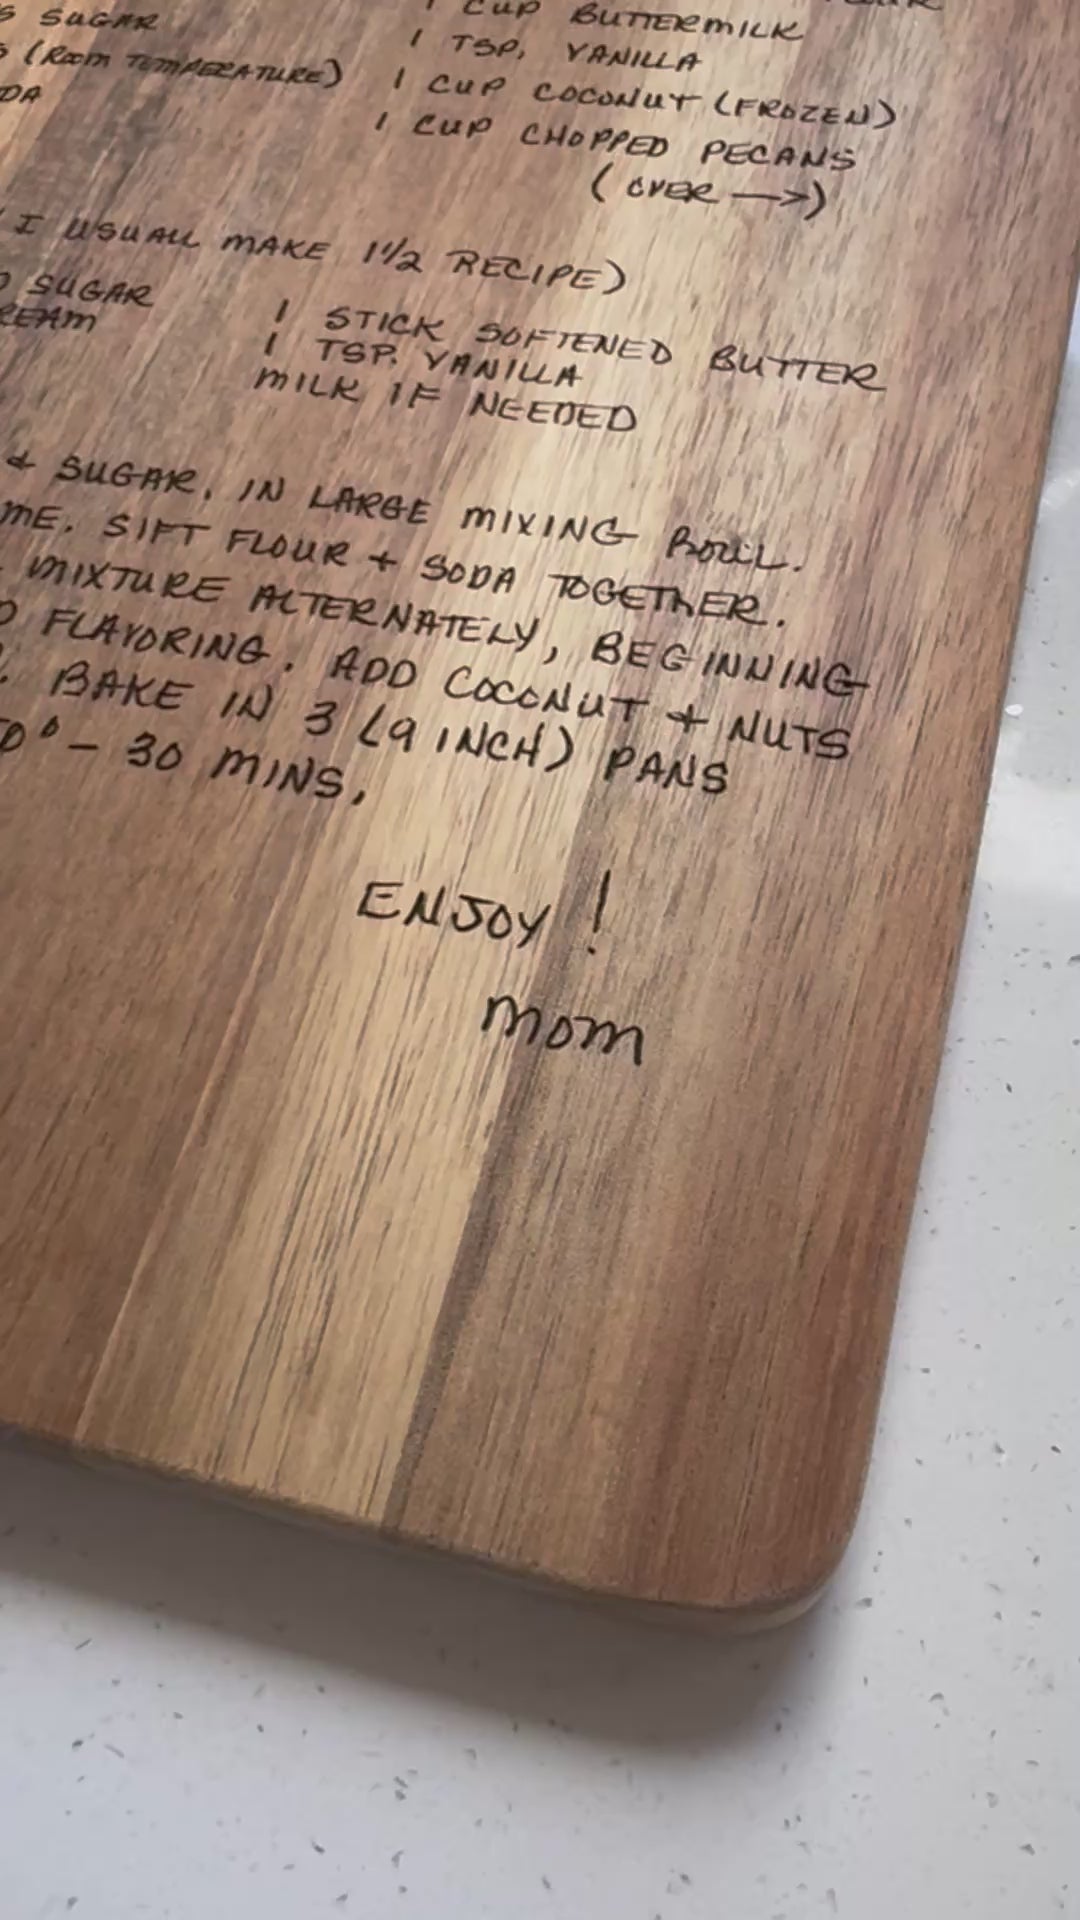 SUGAR
(ROOM TEMPERATURE)
1 CUP BUTTERMILK
1 TSP. VANILLA
1 CUP COCONUT (FROZEN)
1 CUP CHOPPED PECANS
(OVER →)
I USUALL MAKE 1 1/2 RECIPE)
SUGAR
1 STICK SOFTENED BUTTER
1 TSP. VANILLA
MILK IF NEEDED
+ SUGAR, IN LARGE MIXING BOWL.
SIFT FLOUR + SODA TOGETHER.
MIXTURE ALTERNATELY, BEGINNING
FLAVORING. ADD COCONUT + NUTS
BAKE IN 3 (9 INCH) PANS
- 30 MINS.
ENJOY!
MOM